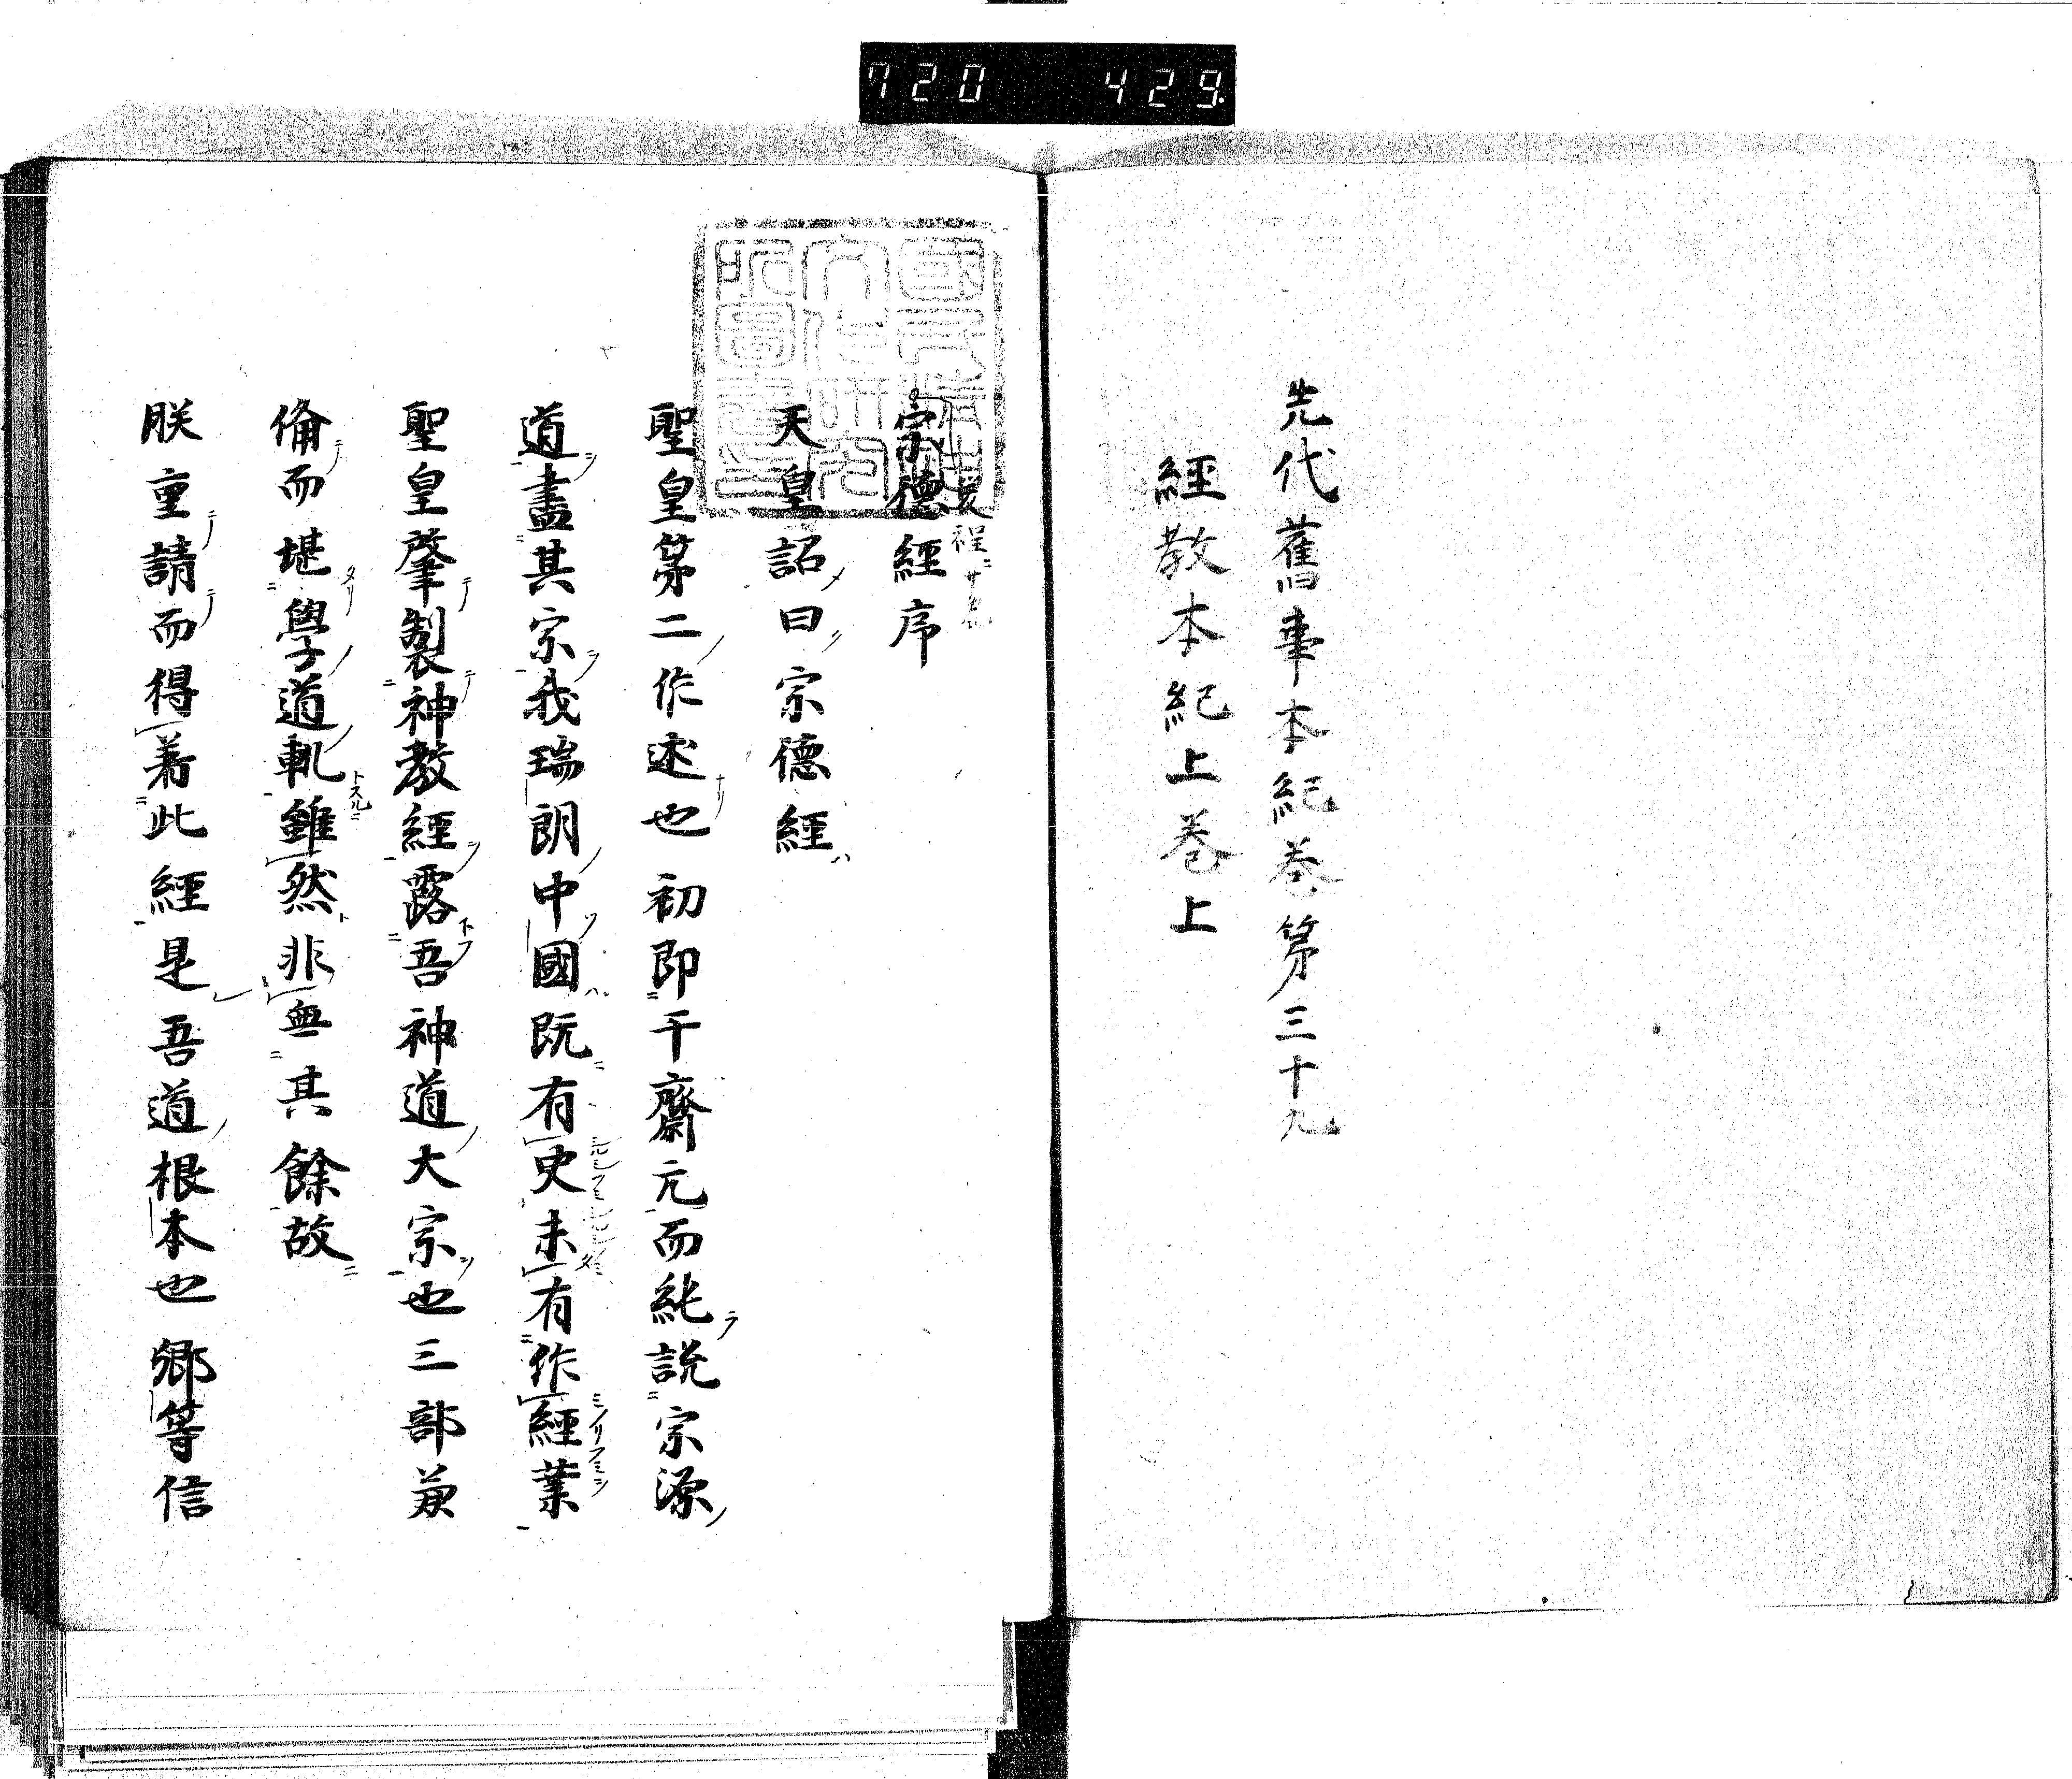 720 429
先代舊事本紀巻第三十九
經教本紀上巻上
宗德經序
天皇詔曰宗德經
聖皇第二作述也初即于齋元而純説宗源
道盡其宗我瑞朗中國既有史未有作經業
聖皇肇製神教經露吾神道大宗也三部兼
備而堪學道軌雖然非無其餘故
朕重請而得著此經是吾道根本也卿等信